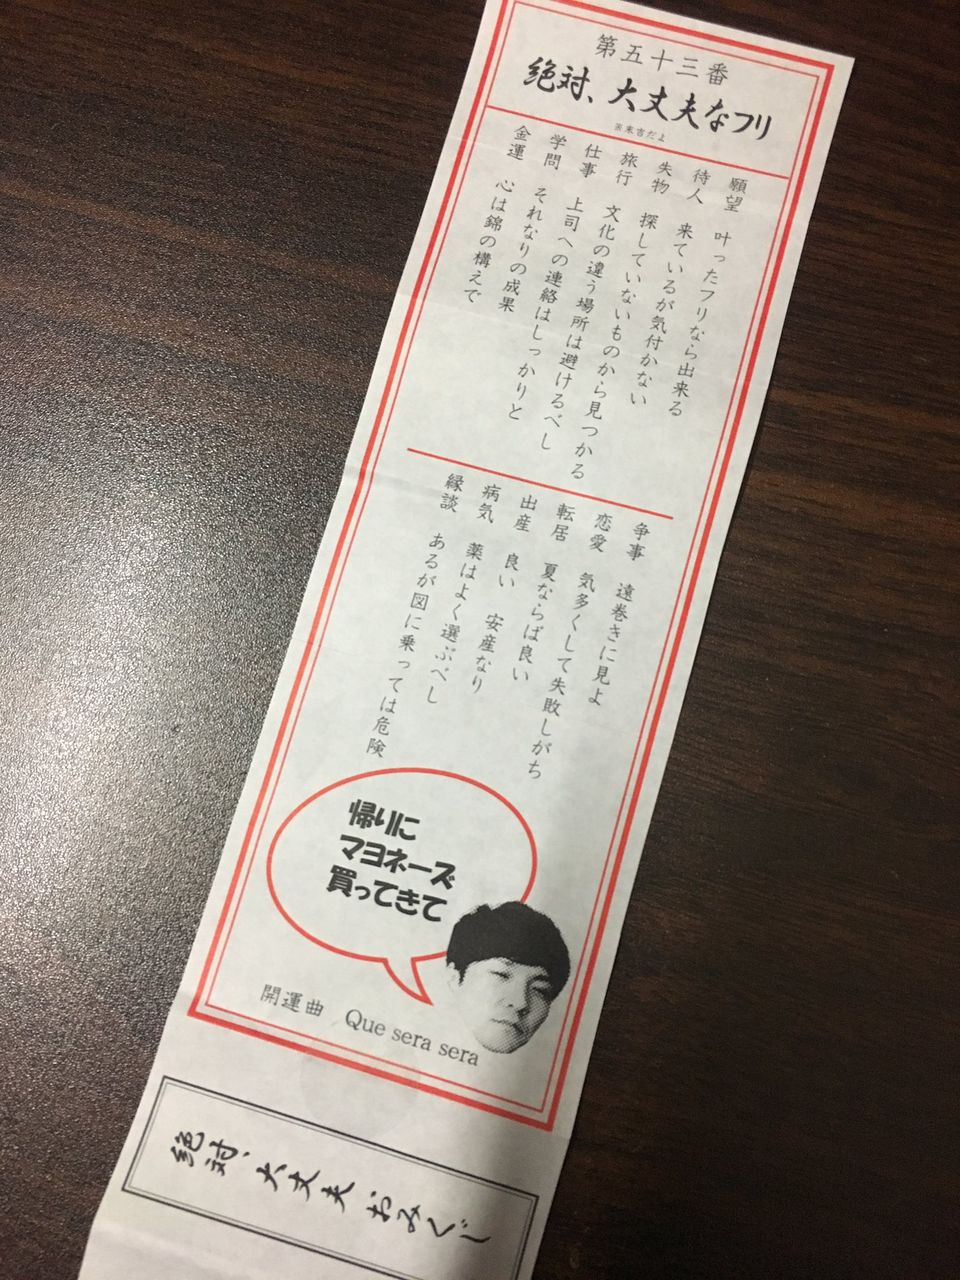 第五十三番
絶対、大丈夫なフリ
※末吉だよ
願望 叶ったフリなら出来る
待人 来ているが気付かない
失物 探していないものから見つかる
旅行 文化の違う場所は避けるべし
仕事 上司への連絡はしっかりと
学問 それなりの成果
金運 心は錦の構えで
争事 遠巻きに見よ
恋愛 気多くして失敗しがち
転居 夏ならば良い
出産 良い 安産なり
病気 薬はよく選ぶべし
縁談 あるが図に乗っては危険
帰りに
マヨネーズ
買ってきて
開運曲 Que sera sera
絶対、大丈夫 おみくじ